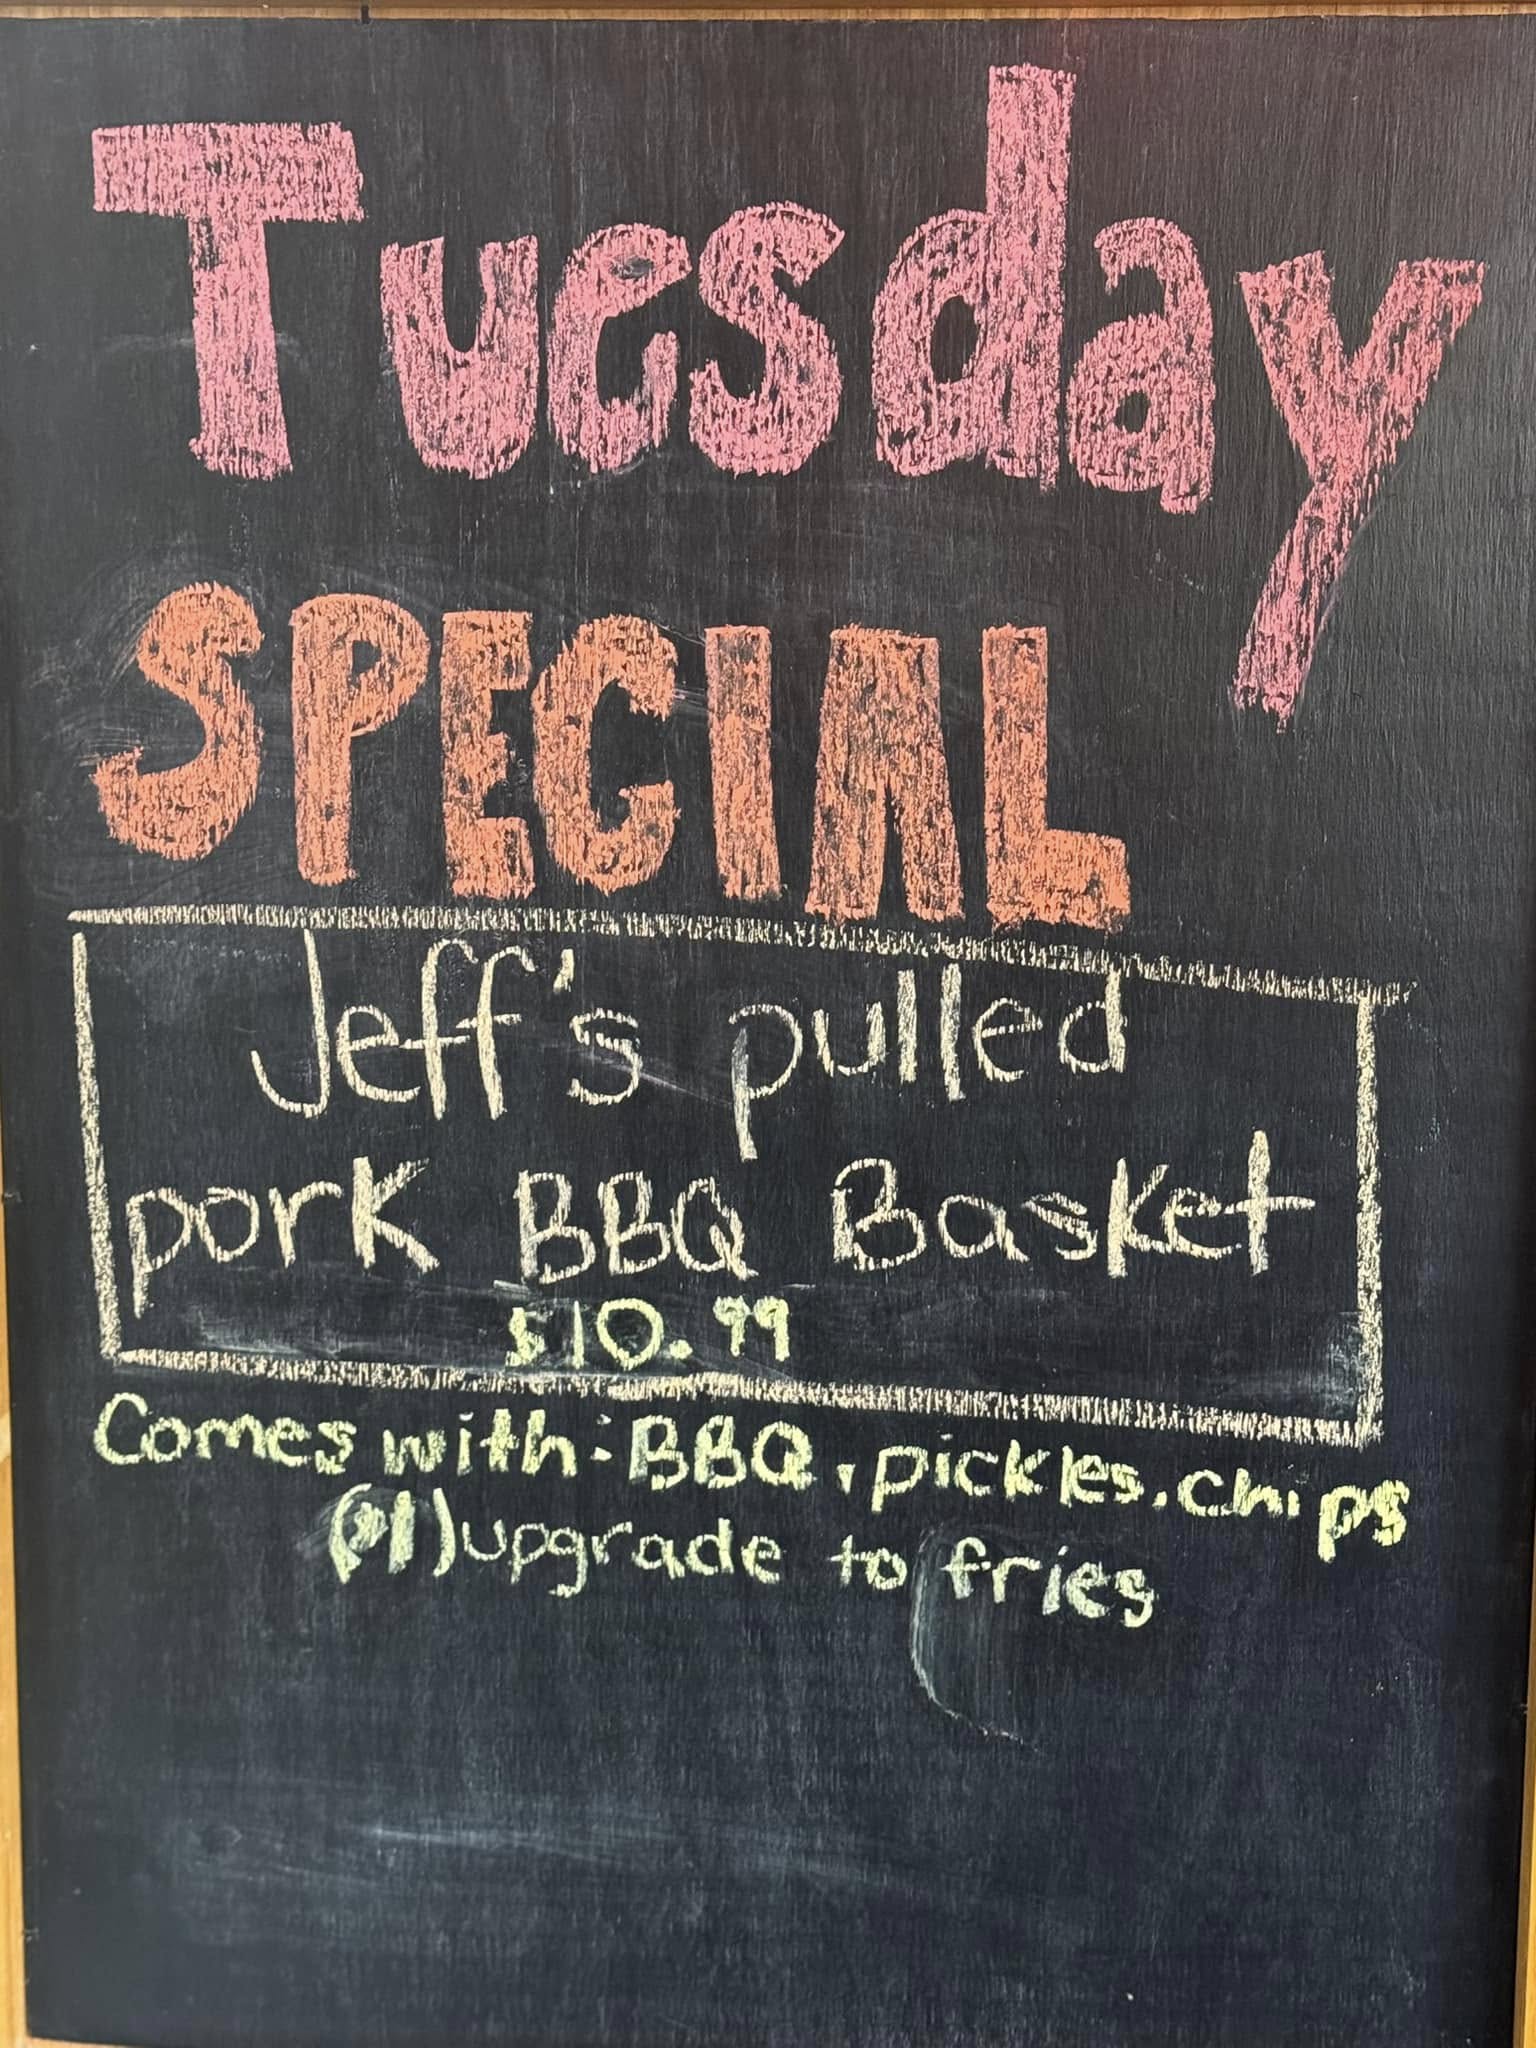 Tuesday
SPECIAL
Jeff's pulled
pork BBQ Basket
$10.99
Comes with: BBQ, pickles, chips
($1) upgrade to fries